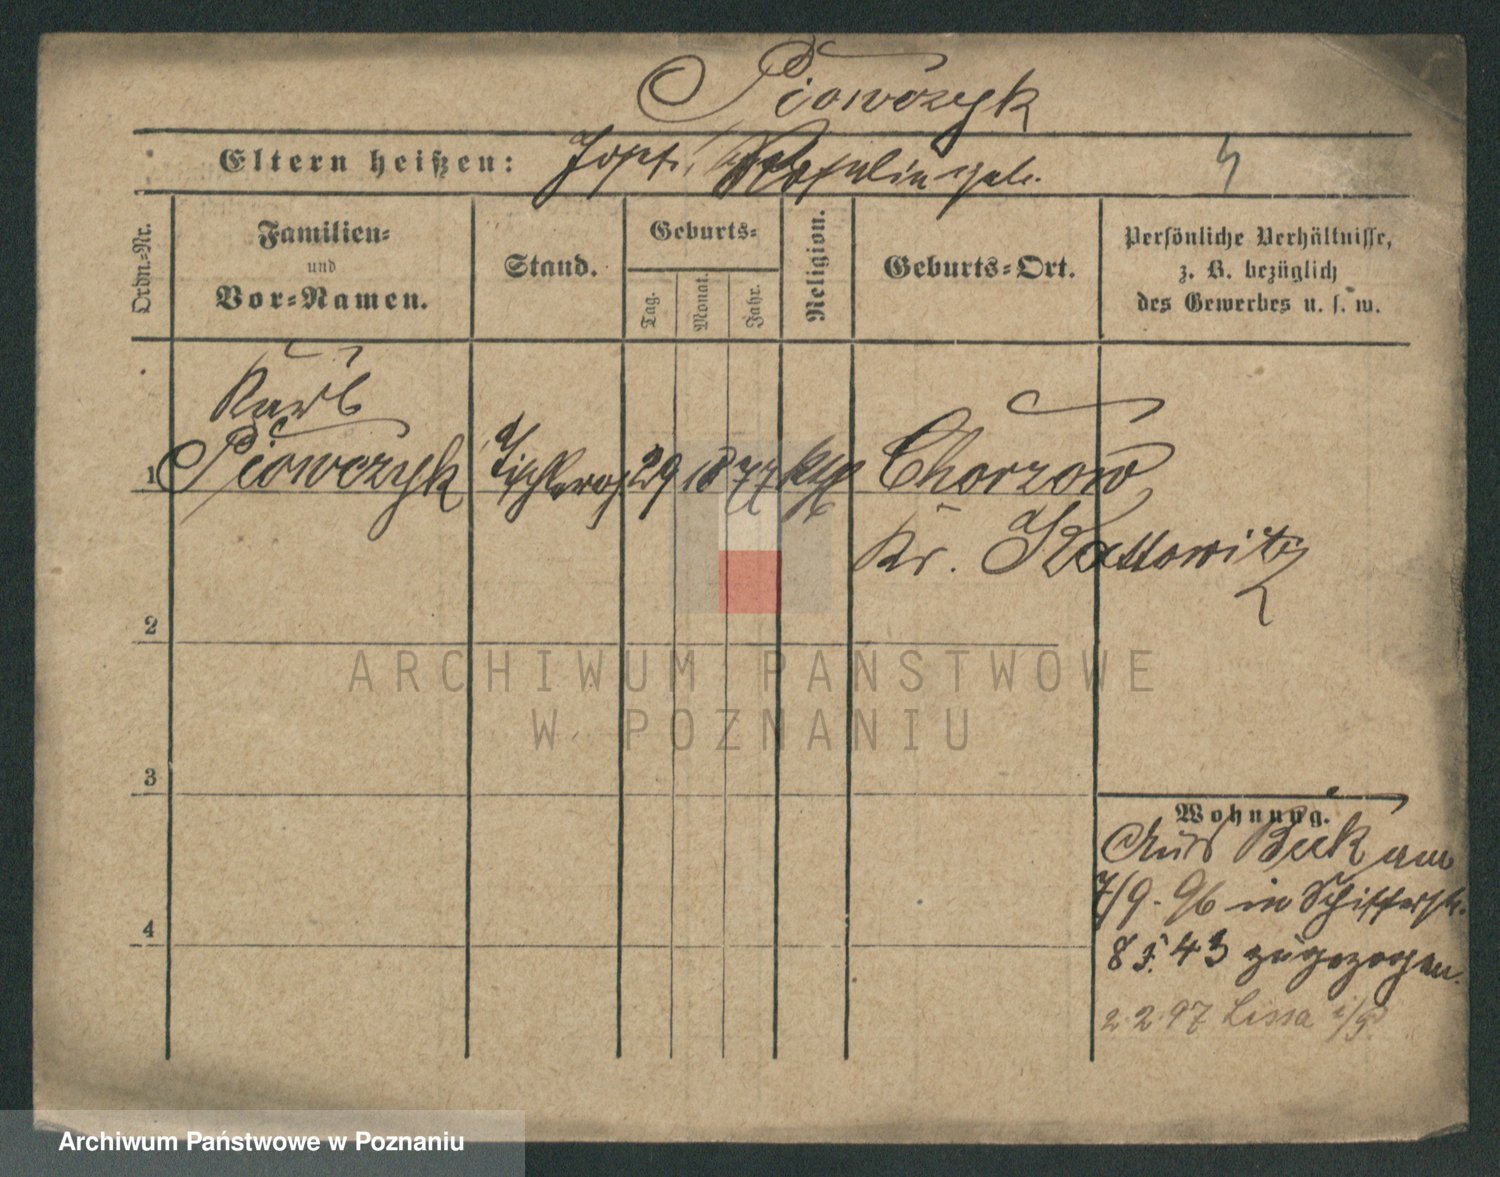 Piowczyk
Eltern heißen: Josef, Rosalie geb.
Ordn.-Nr.
Familien-
und
Vor-Namen.
Stand.
Geburts-
Tag.
Monat.
Jahr.
Religion.
Geburts-Ort.
Persönliche Verhältnisse,
z. B. bezüglich
des Gewerbes u. s. w.
Karl
1 Piowczyk Tischlerges. 29 1877 kath Chorzow
Kr. Kattowitz
2
3
4
Wohnung.
Aus am
7/9. 96 in Schifferstr.
8 b. 43 zugezogen.
2.2.97 Lissa i/P
ARCHIWUM PAŃSTWOWE
W POZNANIU
Archiwum Państwowe w Poznaniu